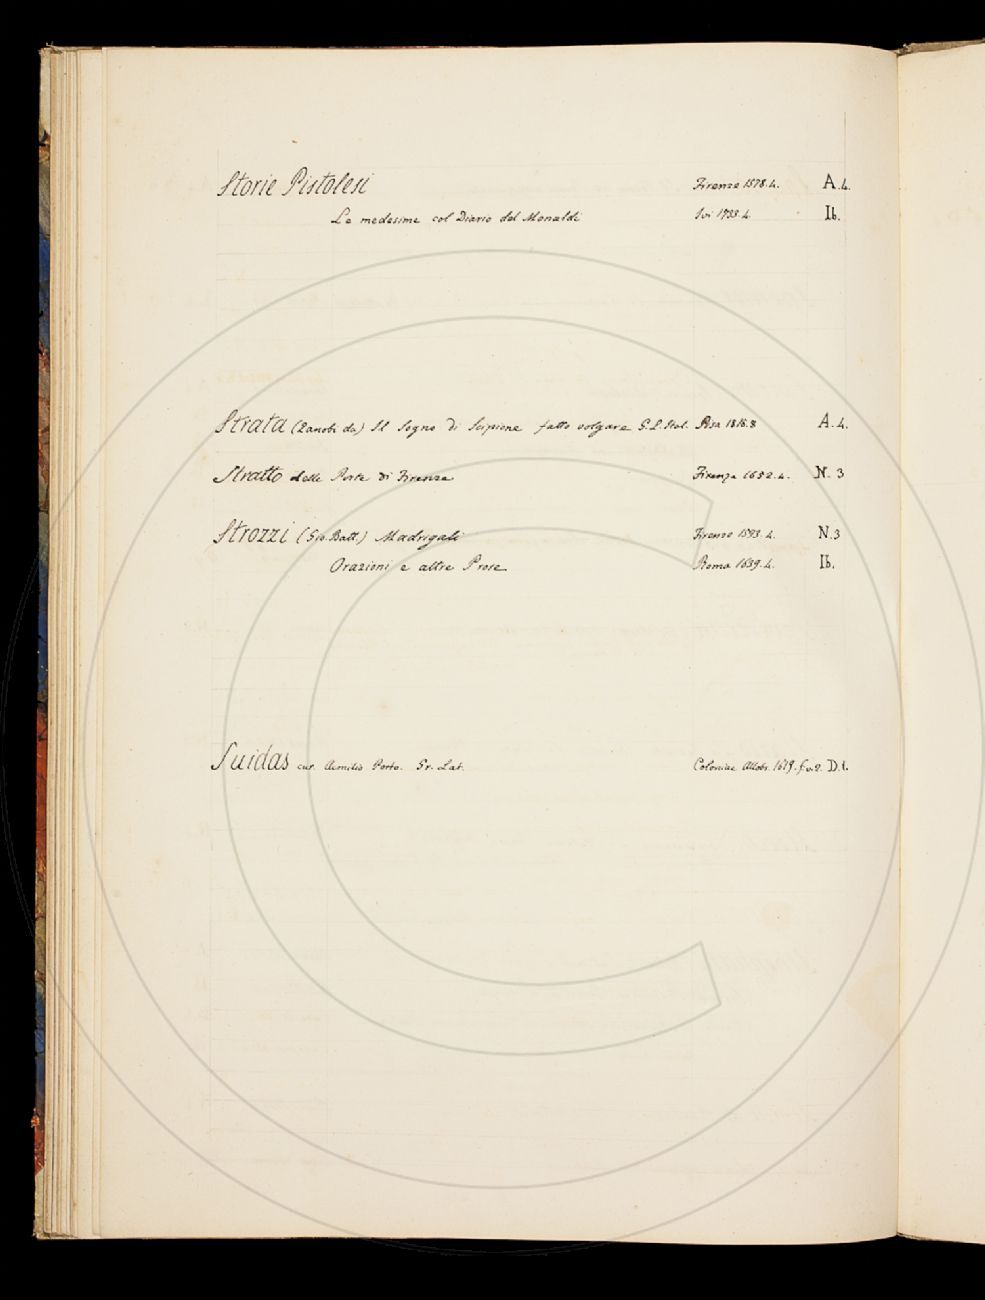 Storie Pistolesi Firenze 1578. 4. A. 4.
Le medesime col Diario del Monaldi Ivi 1733. 4. Ib.
Strata (Zanobi da) Il Sogno di Scipione fatto volgare G. L. Ital. Pisa 1816. 8 A. 4.
Stratto delle Porte di Firenze Firenze 1652. 4. N. 3
Strozzi (Gio. Batt.) Madrigali Firenze 1593. 4. N. 3
Orazioni e altre Prose Roma 1639. 4. Ib.
Suidas cur. Aemilio Porto. Gr. Lat. Coloniae Allobr. 1619. f. v. 2. D. 1.